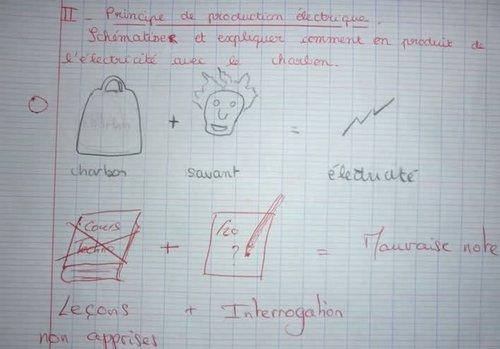 II - Principe de production électrique.
Schématiser et expliquer comment en produit de
l'électricité avec le charbon.
charbon
charbon + savant = électricité
Cours
Techno
/20
?
+ = Mauvaise note
Leçons + Interrogation
non apprises